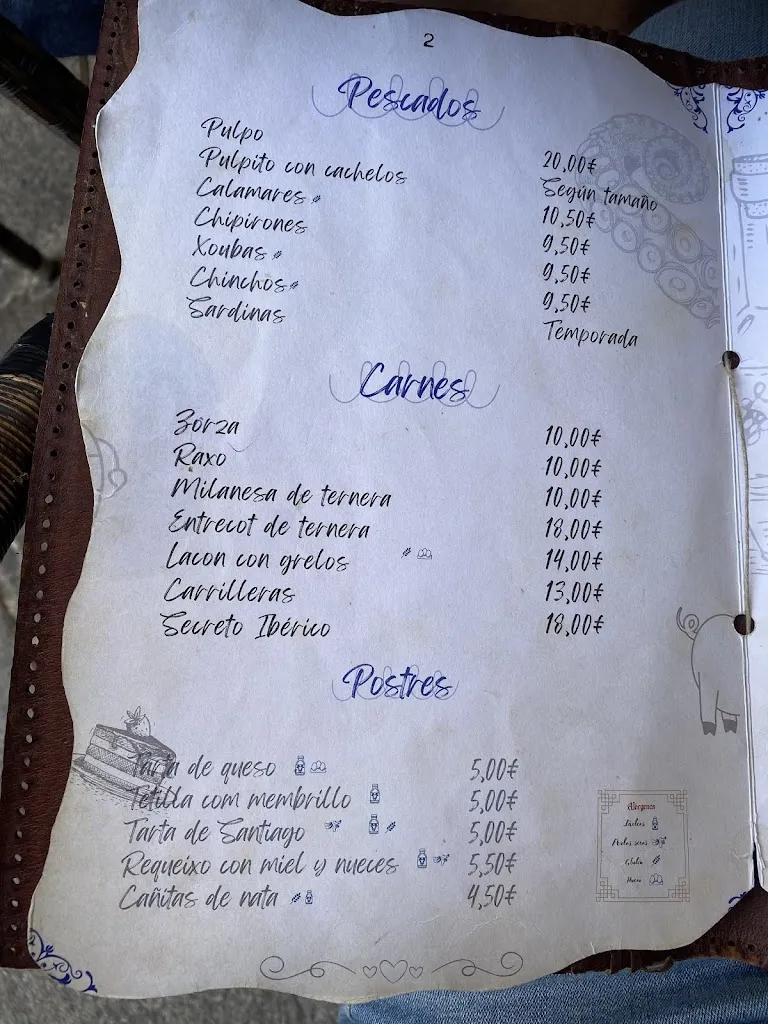 2
Pescados
Pulpo 20,00€
Pulpito con cachelos Según tamaño
Calamares 10,50€
Chipirones 9,50€
Xoubas 9,50€
Chinchos 9,50€
Sardinas Temporada
Carnes
Zorza 10,00€
Raxo 10,00€
Milanesa de ternera 10,00€
Entrecot de ternera 18,00€
Lacon con grelos 14,00€
Carrilleras 13,00€
Secreto Ibérico 18,00€
Postres
Tarta de queso 5,00€
Tetilla com membrillo 5,00€
Tarta de Santiago 5,00€
Requeixo con miel y nueces 5,50€
Cañitas de nata 4,50€
Alergenos
Lácteos
Frutos secos
Gluten
Huevo